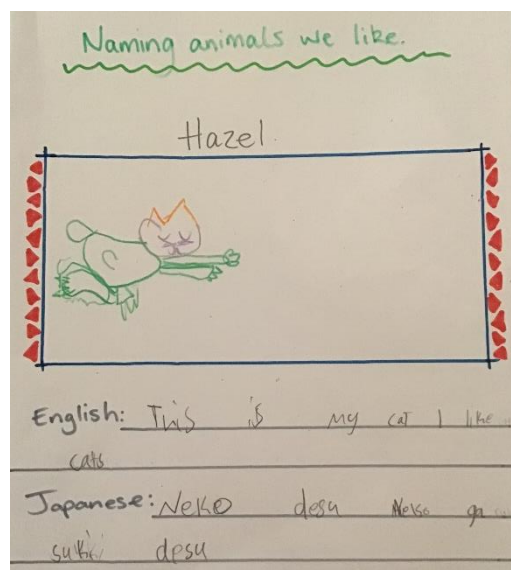 Naming animals we like.
Hazel
English: This is my cat I like
cats
Japanese: Neko desu Neko ga
suki desu